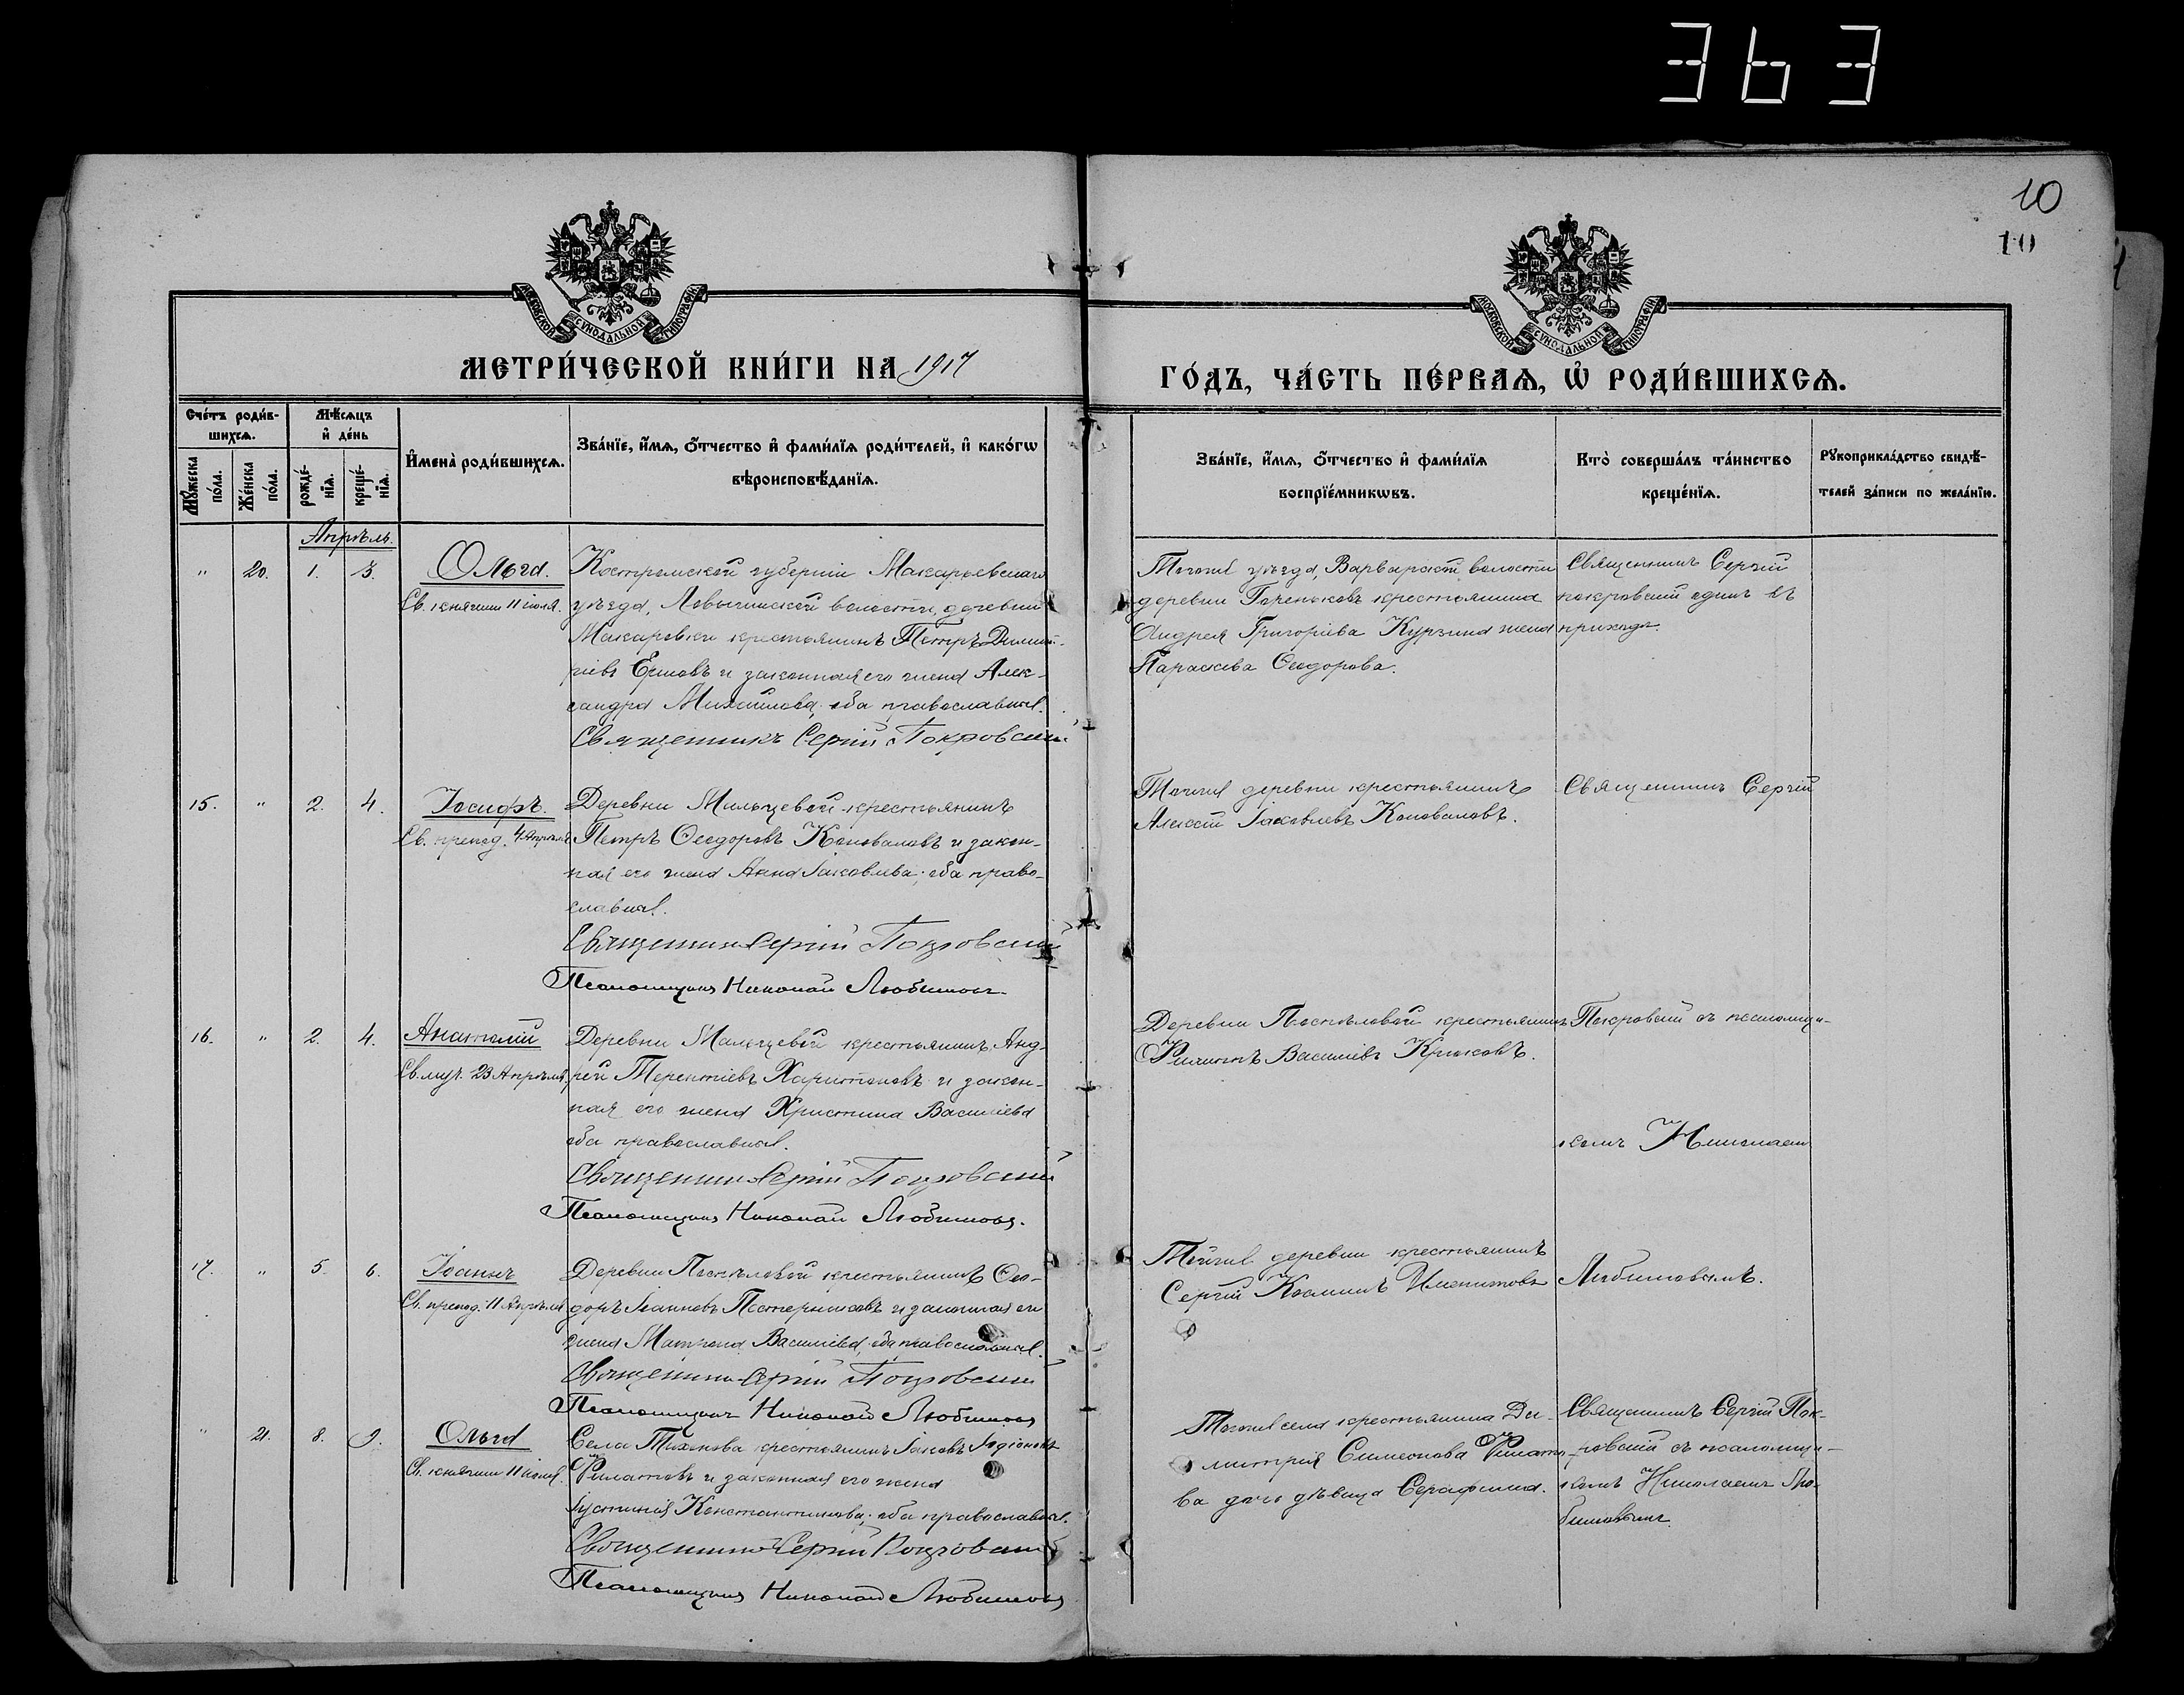 363
10
10
МОСКОВСКОЙ СѴНОДАЛЬНОЙ ТИПОГРАФІИ
МОСКОВСКОЙ СѴНОДАЛЬНОЙ ТИПОГРАФІИ
МЕТРИ́ЧЕСКОЙ КНИ́ГИ НА 1917
ГО́ДЪ, ЧА́СТЬ ПЕ́РВАѦ, Ѿ РОДИ́ВШИХСѦ.
Сче́тъ роди́в-
шихсѧ.
Мѣ́сѧцъ
и҆ де́нь
Мꙋ́жеска по́ла.
Же́нска по́ла.
рожде́-нїѧ.
креще́-нїѧ.
И҆мена̀ роди́вшихсѧ.
Зва́нїе, и҆́мѧ, ѻ҆́тчество и҆ фами́лїѧ роди́телей, и҆ како́гѡ
вѣроисповѣ́данїѧ.
Зва́нїе, и҆́мѧ, ѻ҆́тчество и҆ фами́лїѧ
воспрїе́мникѡвъ.
Кто̀ соверша́лъ та́инство
креще́нїѧ.
Рꙋкоприкла́дство свидѣ́-
телей за́писи по жела́нїю.
Апрѣль.
" 20. 1. 3. Ольга.
Св. княгини 11 іюля.
Костромской губерніи Макарьевскаго
уѣзда, деревни
Макаровки крестьянинъ Петръ Димит-
ріевъ Ершовъ и законная его жена Алек-
сандра Михаилова, оба православные.
Священникъ Сергій Покровскій
Тогоже уѣзда, Варварской волости
деревни крестьянина
Андрея Григоріева Курзина жена
Параскева Ѳеодорова.
Священникъ Сергій
Покровскій одинъ въ
приходѣ.
15. " 2. 4. Іосифъ.
Св. препод. 4 Апрѣля
Деревни Мильцевой крестьянинъ
Петръ Ѳеодоровъ Коноваловъ и закон-
ная его жена Анна Іаковлева, оба право-
славные.
Священникъ Сергій Покровскій
Псаломщикъ Николай Любимовъ.
Тогоже деревни крестьянинъ
Алексій Іаковлевъ Коноваловъ.
Священникъ Сергій
16. " 2. 4. Анатолій
Св. муч. 23 Апрѣля.
Деревни Мальцевой крестьянинъ Анд-
рей Терентіевъ Харитоновъ и закон-
ная его жена Христина Василіева
оба православные.
Священникъ Сергій Покровскій
Псаломщикъ Николай Любимовъ.
Деревни Поспѣловой крестьянинъ
Филиппъ Василіевъ Крюковъ.
Покровскій съ псаломщи-
комъ Николаемъ
17. " 5. 6. Іоаннъ
Св. препод. 11 Апрѣля
Деревни Поспѣловой крестьянинъ Ѳео-
доръ Іоанновъ и законная его
жена Матрона Василіева, оба православные.
Священникъ Сергій Покровскій
Псаломщикъ Николай Любимовъ
Тойже деревни крестьянинъ
Сергій Косминъ
Любимовымъ.
" 21. 8. 9. Ольга
Св. княгини 11 іюля.
Села Тихонова крестьянинъ Іаковъ
Филатовъ и законная его жена
Іустинія Константинова, оба православные.
Священникъ Сергій Покровскій
Псаломщикъ Николай Любимовъ
Тогоже села крестьянина Ди-
митрія Симеонова Филато-
ва дочь дѣвица Серафима.
Священникъ Сергій Пок-
ровскій съ псаломщи-
комъ Николаемъ Лю-
бимовымъ.